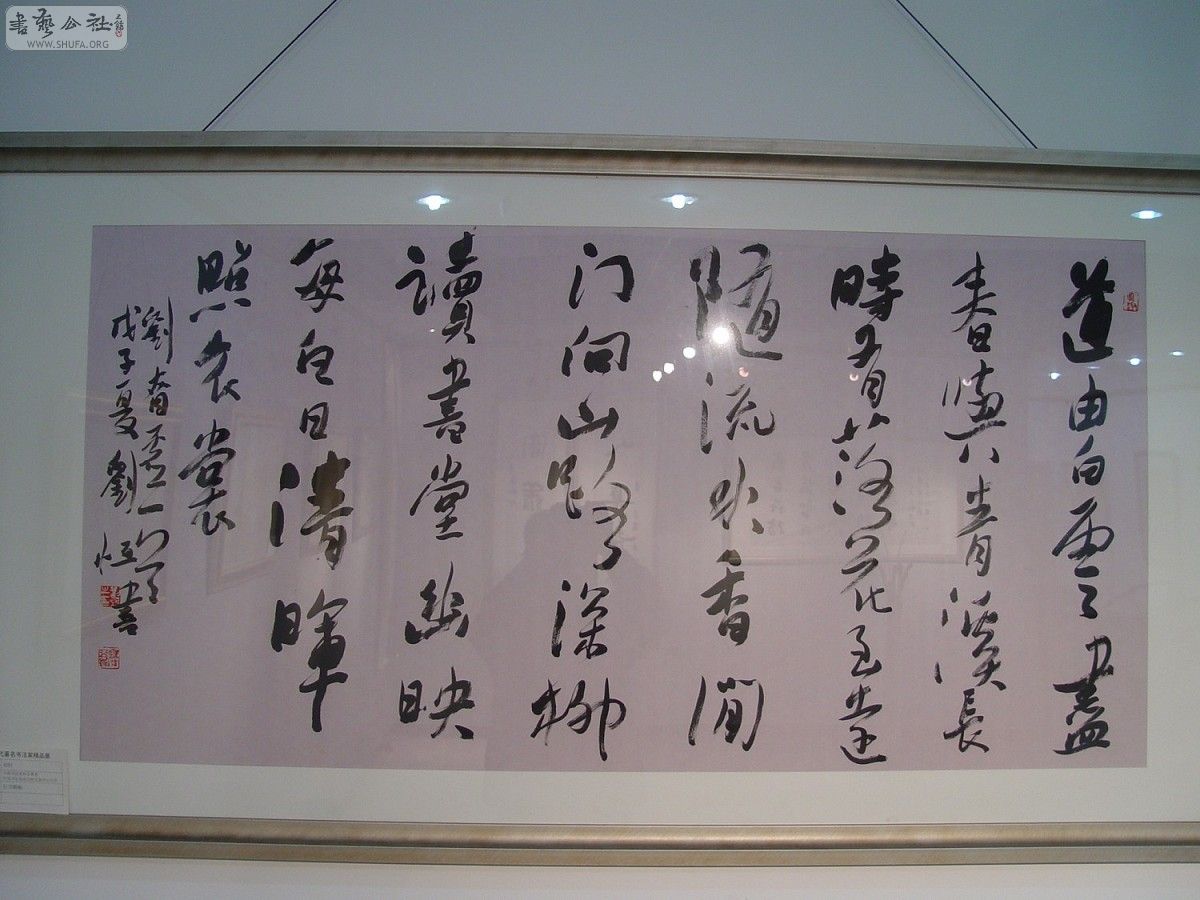 書藝公社
WWW.SHUFA.ORG
道由白雲盡
春與青溪長
時有落花至遠
隨流水香閒
门向山路深柳
讀書堂幽映
每白日清暉
照衣裳
劉昚虛一
戊子夏劉恒書